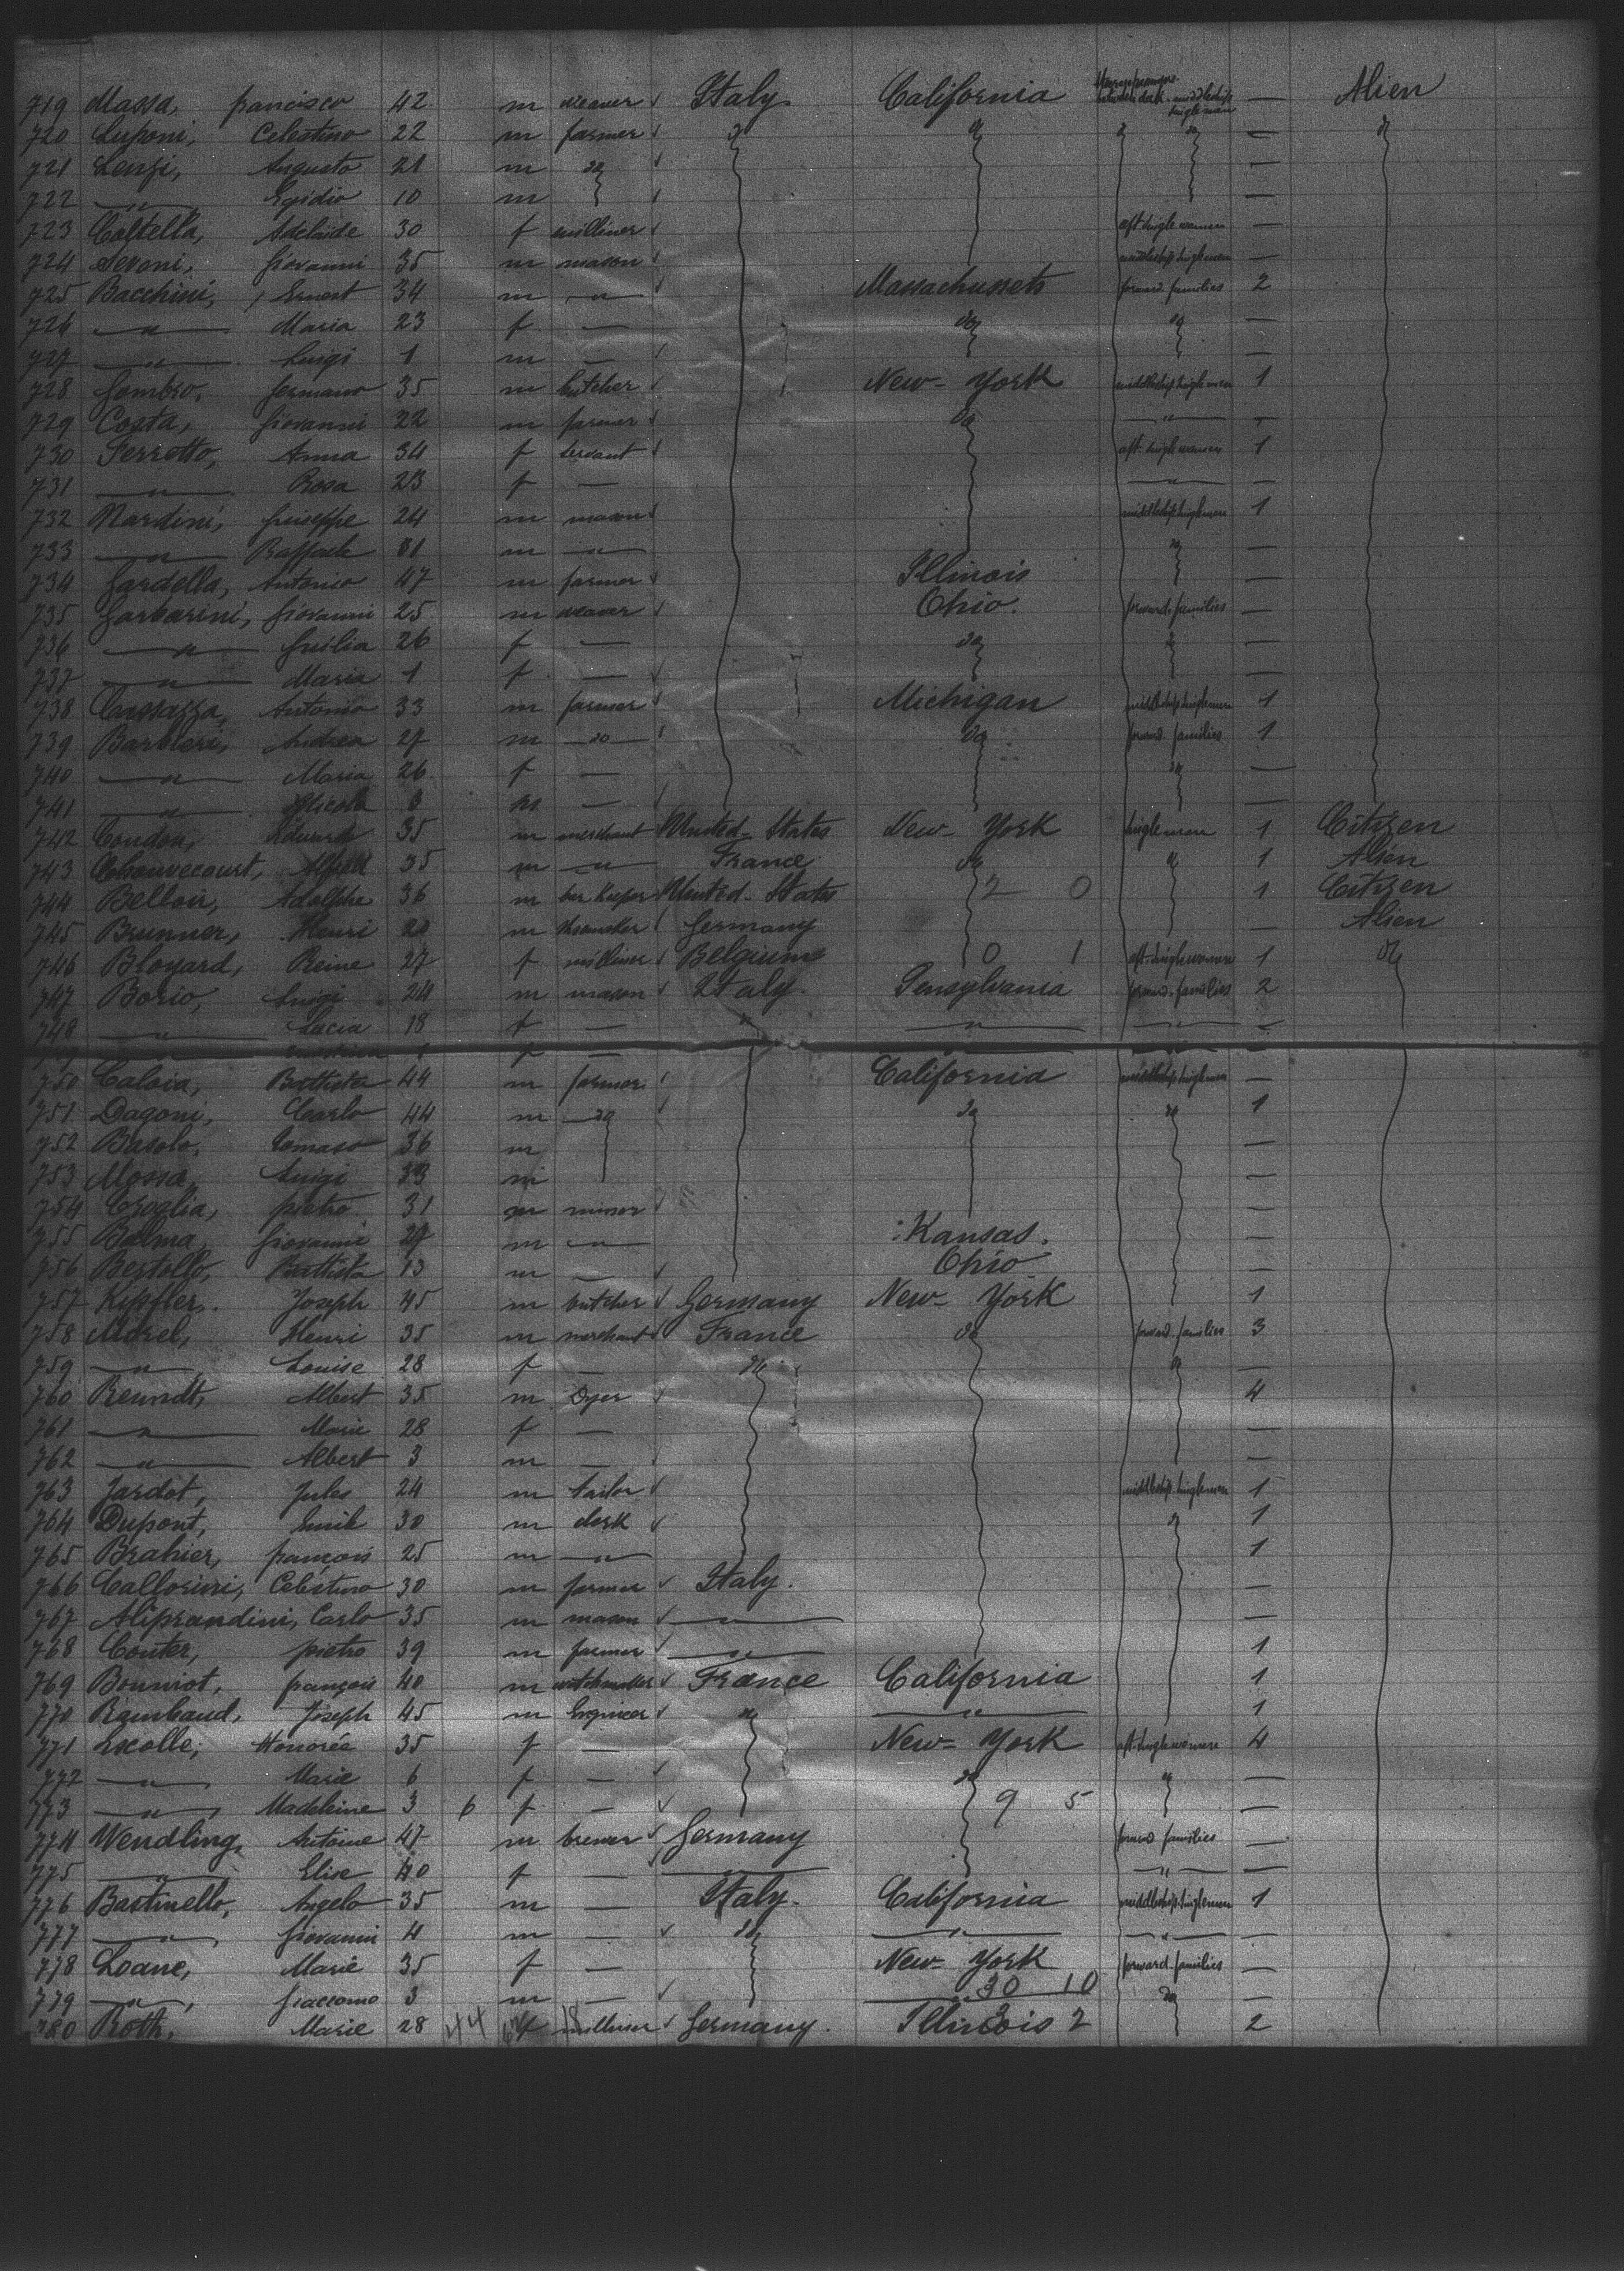 719 Massa, francisco 42 m weaver ✓ Italy California middleship single men — Alien
720 Luponi, Celestino 22 m farmer ✓ do do do do — do
721 Lenzi, Augusto 21 m do ✓ —
722 —"— Egidio 10 m —
723 Coltella, Adelaide 30 f milliner ✓ aft. single women —
724 Seroni, Giovanni 35 m mason ✓ middleship single men —
725 Bacchini, Ernest 34 m —"— Massachussets forward families 2
726 —"— Maria 23 f — do do —
727 —"— Luigi 1 m — —
728 Germano 35 m butcher ✓ New-York middleship single men 1
729 Costa, Giovanni 22 m farmer ✓ do —"— —
730 Ferretto, Anna 34 f servant ✓ aft. single women 1
731 —"— Rosa 23 f — —"— —
732 Nardini, Giuseppe 24 m mason ✓ middleship single men 1
733 —"— 31 m —"— do —
734 Gardella, Antonio 47 m farmer ✓ Illinois —
735 Garbarini, Giovanni 25 m weaver ✓ Ohio. forward. families —
736 —"— 26 f — do do —
737 —"— Maria 1 f — ✓ —
738 Antonio 33 m farmer ✓ Michigan middleship single men 1
739 Barbieri, Andrea 27 m —do— do forward. families 1
740 —"— Maria 26 f — do —
741 —"— Nicola m — —
742 Condon, Edward 35 m merchant United-States New-York single men 1 Citizen
743 Chauvecourt, Alfred 35 m —"— France do do 1 Alien
744 Belloir, Adolphe 36 m bar Keeper United-States 2 0 1 Citizen
745 Brunner, Henri m Germany — Alien
746 Bloyard, Reine 27 f milliner ✓ Belgium 0 1 aft. single women 1 do
747 Borio, Luigi 24 m mason ✓ Italy. Pensylvania forward. families 2
748 —"— Lucia 18 f — " —"— —"— —
750 Caloia, Battista 44 m farmer California middleship single men —
751 Dagoni, Carlo 44 m do do do 1
752 Basolo, Tomaso 36 m —
753 Mossa, Luigi 33 m —
754 pietro 31 m miner ✓ —
755 Balma, Giovanni m —"— Kansas. —
756 Bertollo, Battista 13 m — ✓ Ohio —
757 Kipfler, Joseph 45 m butcher ✓ Germany New-York 1
758 Morel, Henri 35 m merchant ✓ France do forward. families 3
759 —"— Louise 28 f — do do —
760 Reundt, Albert 35 m Dyer ✓ 4
761 —"— Marie 28 f — —
762 —"— Albert 3 m — —
763 Jardot, Jules 24 m tailor ✓ middleship. single men 1
764 Dupont, Emile 30 m clerk ✓ do 1
765 Brahier, françois 25 m —"— 1
766 Callorini, Celestino 30 m farmer ✓ Italy. —
767 Aliprandini, Carlo 35 m mason ✓ —"— —
768 Conter, pietro 39 m farmer ✓ —"— 1
769 Bonniot, françois 40 m watchmaker ✓ France California 1
770 Rambaud, Joseph 45 m Engineer ✓ do —"— 1
771 Lecolle, Honorée 35 f — New-York aft. single women 4
772 —"— Marie 6 f — ✓ do do —
773 —"— Madeleine 3 6 f — ✓ 9 5 —
774 Wendling, Antoine 47 m brewer ✓ Germany forward families —
775 —"— Elise 40 f — —"— —"— —
776 Bastinello, Angelo 35 m — Italy. California middleship. single men 1
777 —"— Giovanni 4 m — ✓ do —"— —"— —
778 Loane, Marie 35 f — New-York forward. families —
779 —"— Giaccomo 3 m — ✓ —"— 30 10 do —
780 Roth, Marie 28 44 f milliner ✓ Germany. Illinois 2 2